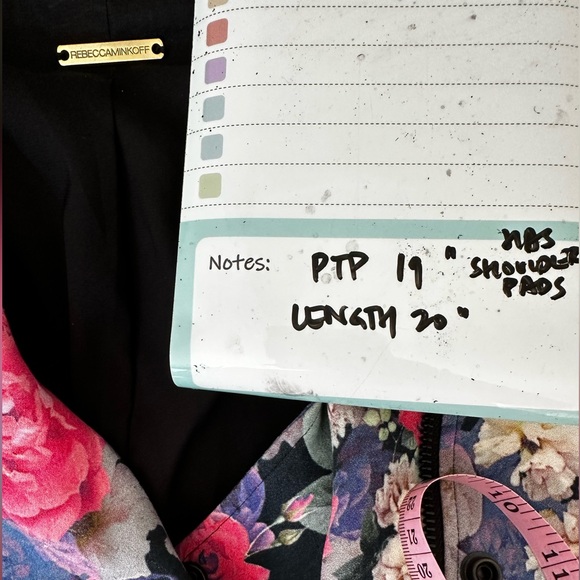 REBECCAMINKOFF
Notes: PTP 19" HAS
SHOULDER
PADS
LENGTH 20"
10
11
22
21
20